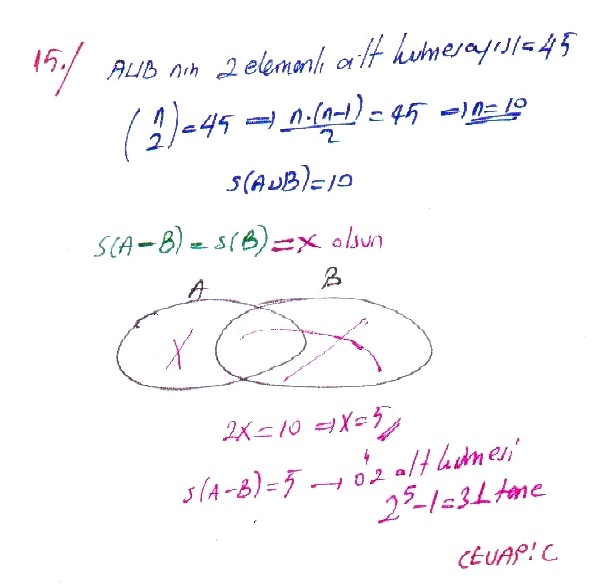 15./ AUB nin 2 elemanlı alt kümesayısı=45
(n 2)=45 ⟹ n.(n-1)/2 = 45 ⟹ n=10
s(AUB)=10
s(A-B)=s(B)=x olsun
A B
X X
2x=10 ⟹ x=5//
s(A-B)=5 → öz alt kümesi
2⁵-1=31 tane
CEVAP: C